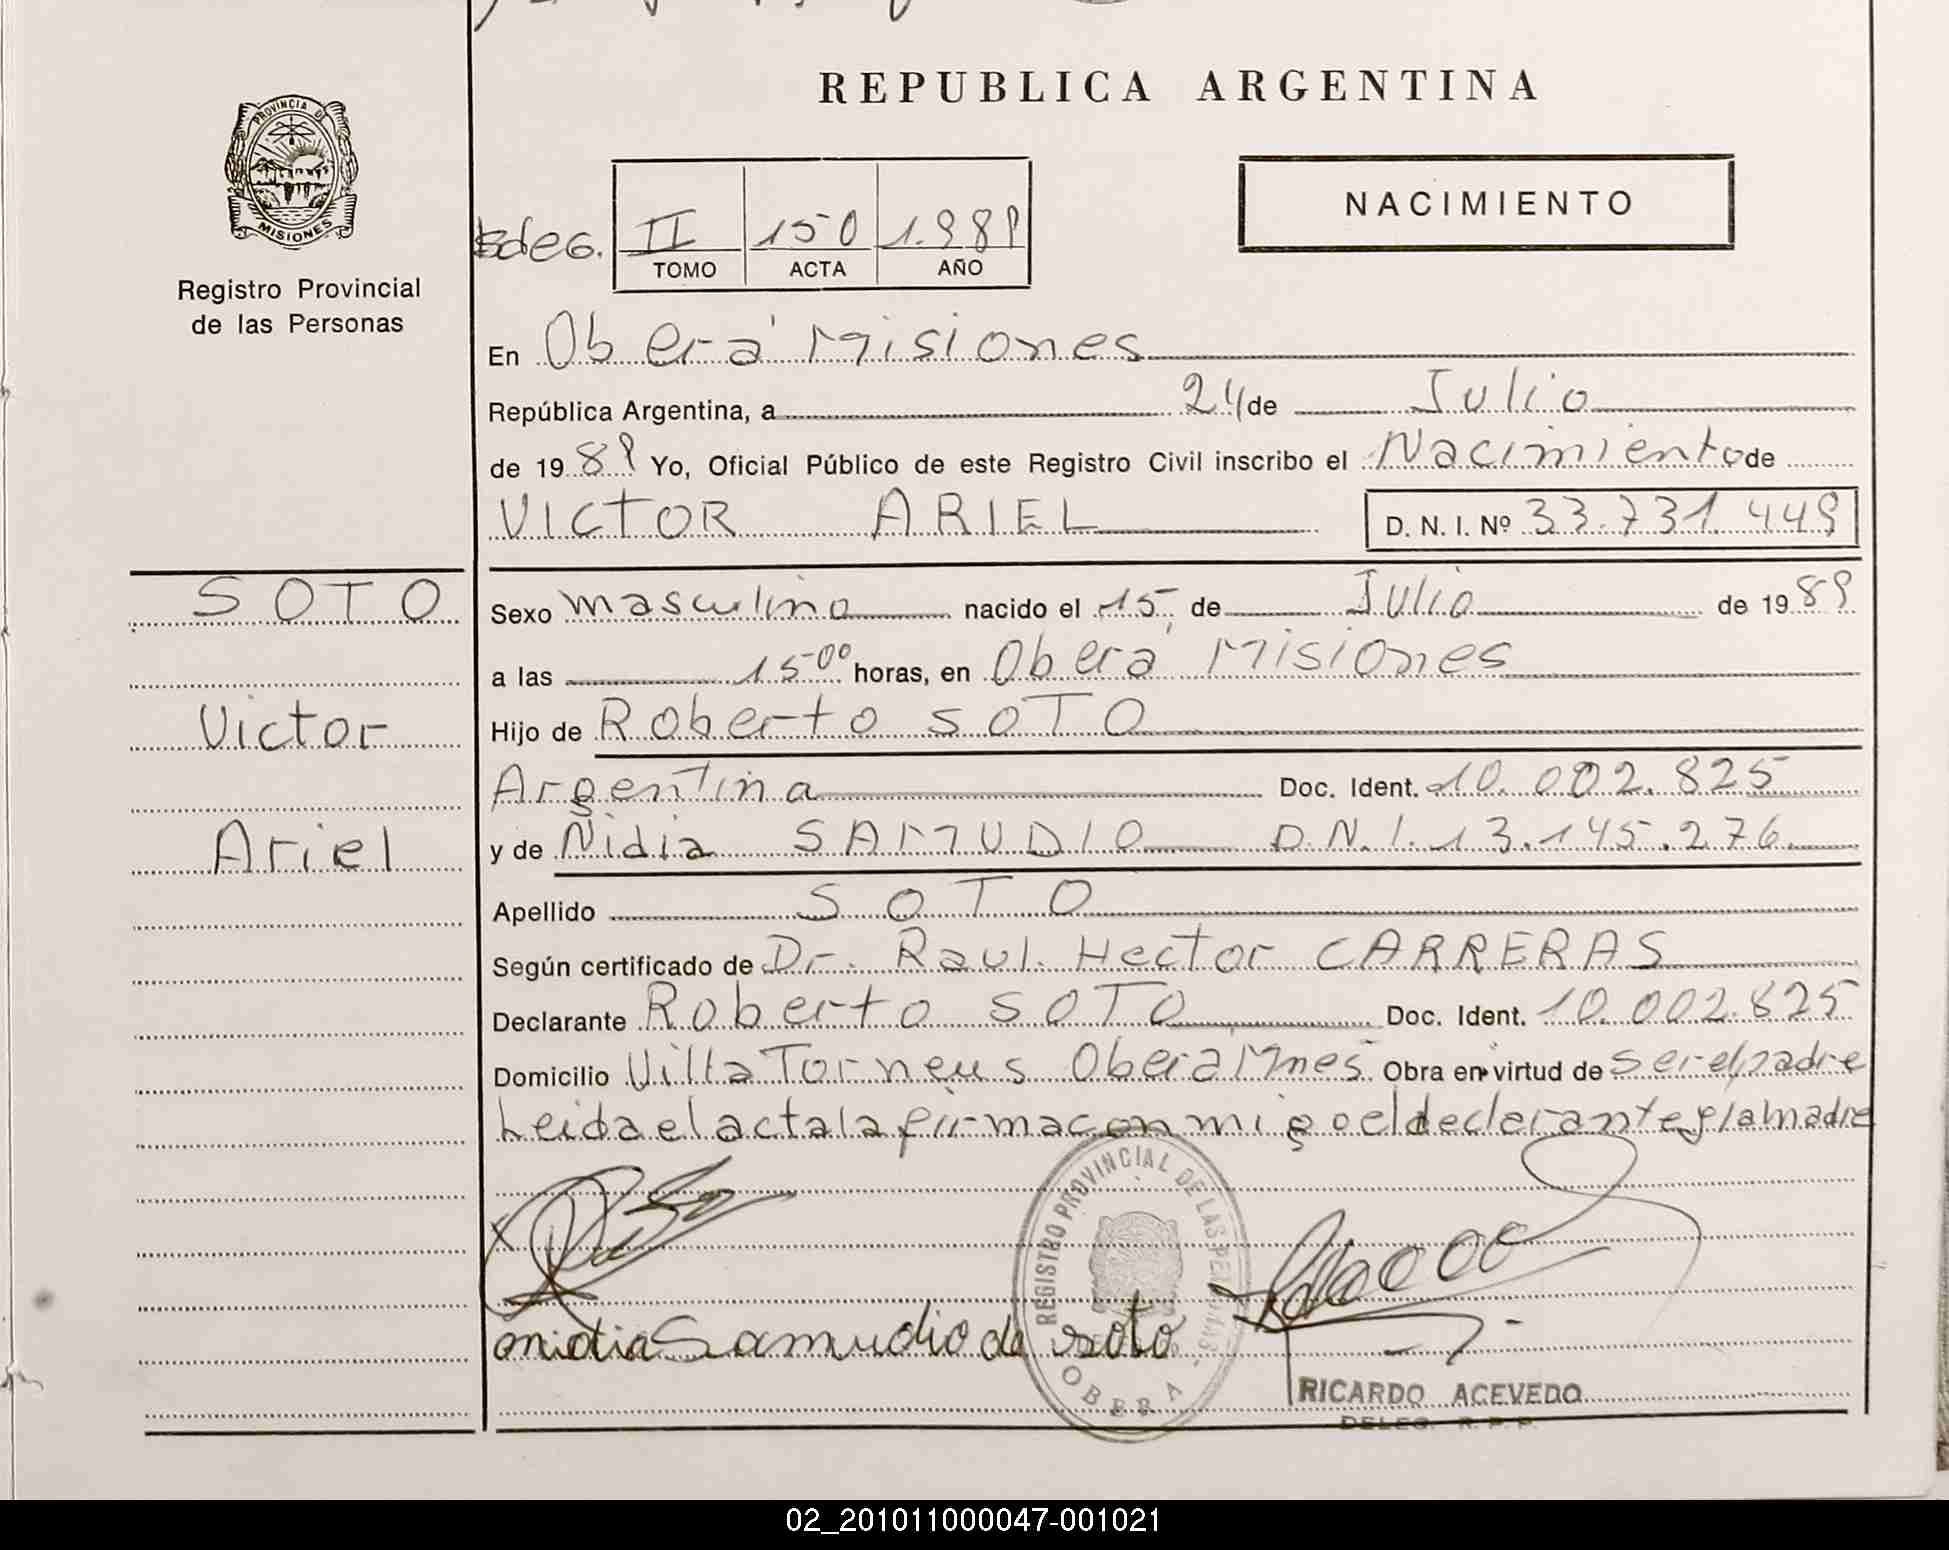 REPUBLICA ARGENTINA
PROVINCIA DE
MISIONES
Registro Provincial
de las Personas
NACIMIENTO
II 150 1.989
TOMO ACTA AÑO
En Oberá Misiones
República Argentina, a 24 de Julio
de 1989 Yo, Oficial Público de este Registro Civil inscribo el Nacimiento de
VICTOR ARIEL D. N. I. Nº 33.731.449
SOTO
Victor
Ariel
Sexo masculino nacido el 15 de Julio de 1989
a las 15-00 horas, en Oberá Misiones
Hijo de Roberto SOTO
Argentina Doc. Ident. 10.002.825
y de Nidia SAMUDIO D.N.I. 13.145.276
Apellido SOTO
Según certificado de Dr. Raul Hector CARRERAS
Declarante Roberto SOTO Doc. Ident. 10.002.825
Domicilio Villa Torneus Oberá Mnes Obra en virtud de ser el padre
Leida el acta la firma conmigo el declarante y la madre
REGISTRO PROVINCIAL DE LAS PERSONAS
OBERA
nidia Samudio de soto
RICARDO ACEVEDO
DELEG. R. P. P.
02_201011000047-001021